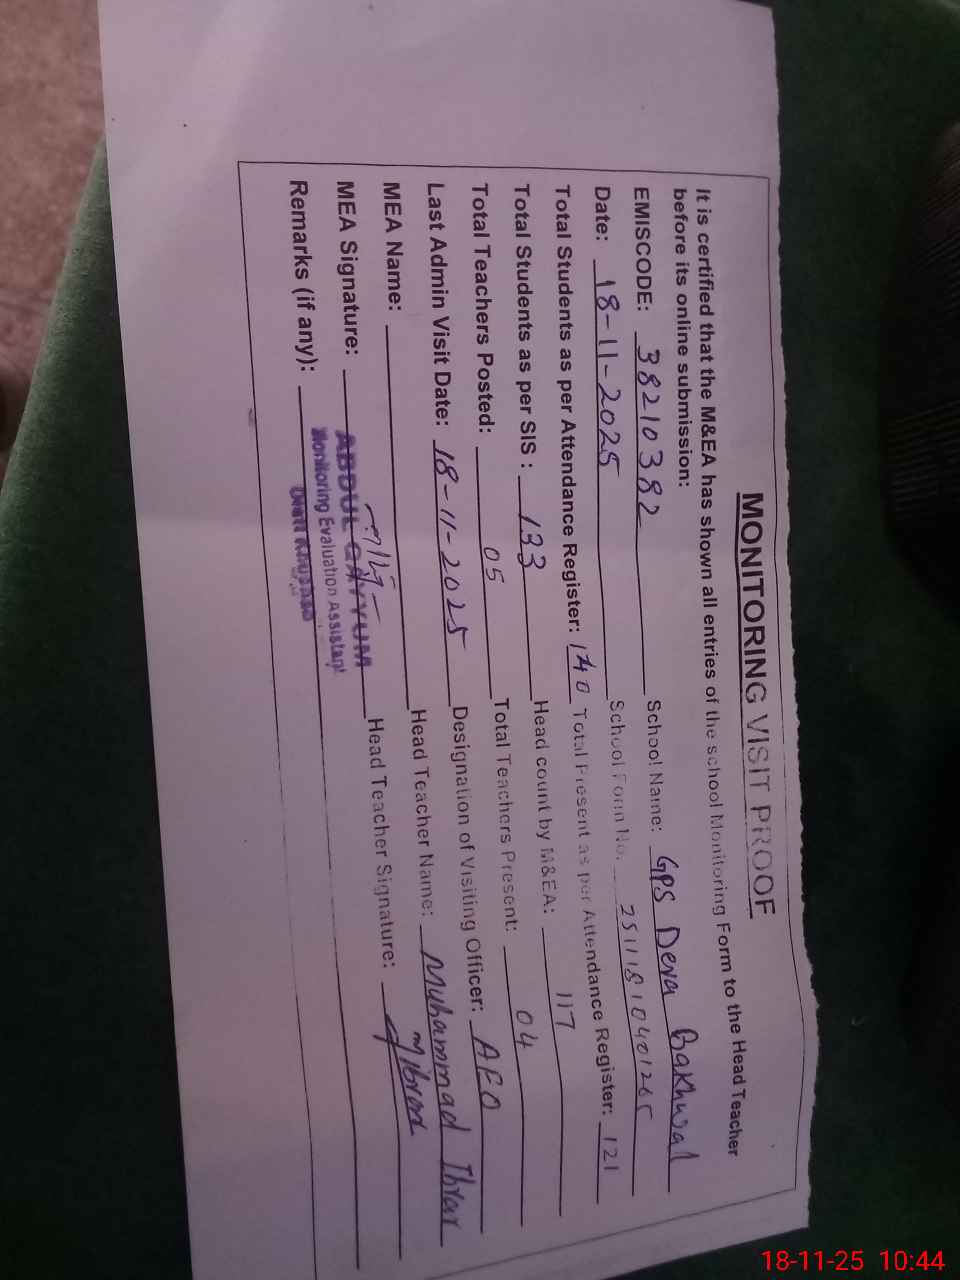 MONITORING VISIT PROOF
It is certified that the M&EA has shown all entries of the School Monitoring Form to the Head Teacher
before its online submission:
EMISCODE: 38210382 School Name: GPS Dera Bakhwal
Date: 18-11-2025 School Form No. 25111810401265
Total Students as per Attendance Register: 140 Total Present as per Attendance Register: 121
Total Students as per SIS : 133 Head count by M&EA: 117
Total Teachers Posted: 05 Total Teachers Present: 04
Last Admin Visit Date: 18-11-2025 Designation of Visiting Officer: AEO
MEA Name: Head Teacher Name: Muhammad Ibrar
MEA Signature: Head Teacher Signature:
ABDUL QAYYUM
Monitoring Evaluation Assistant
Remarks (if any):
18-11-25 10:44